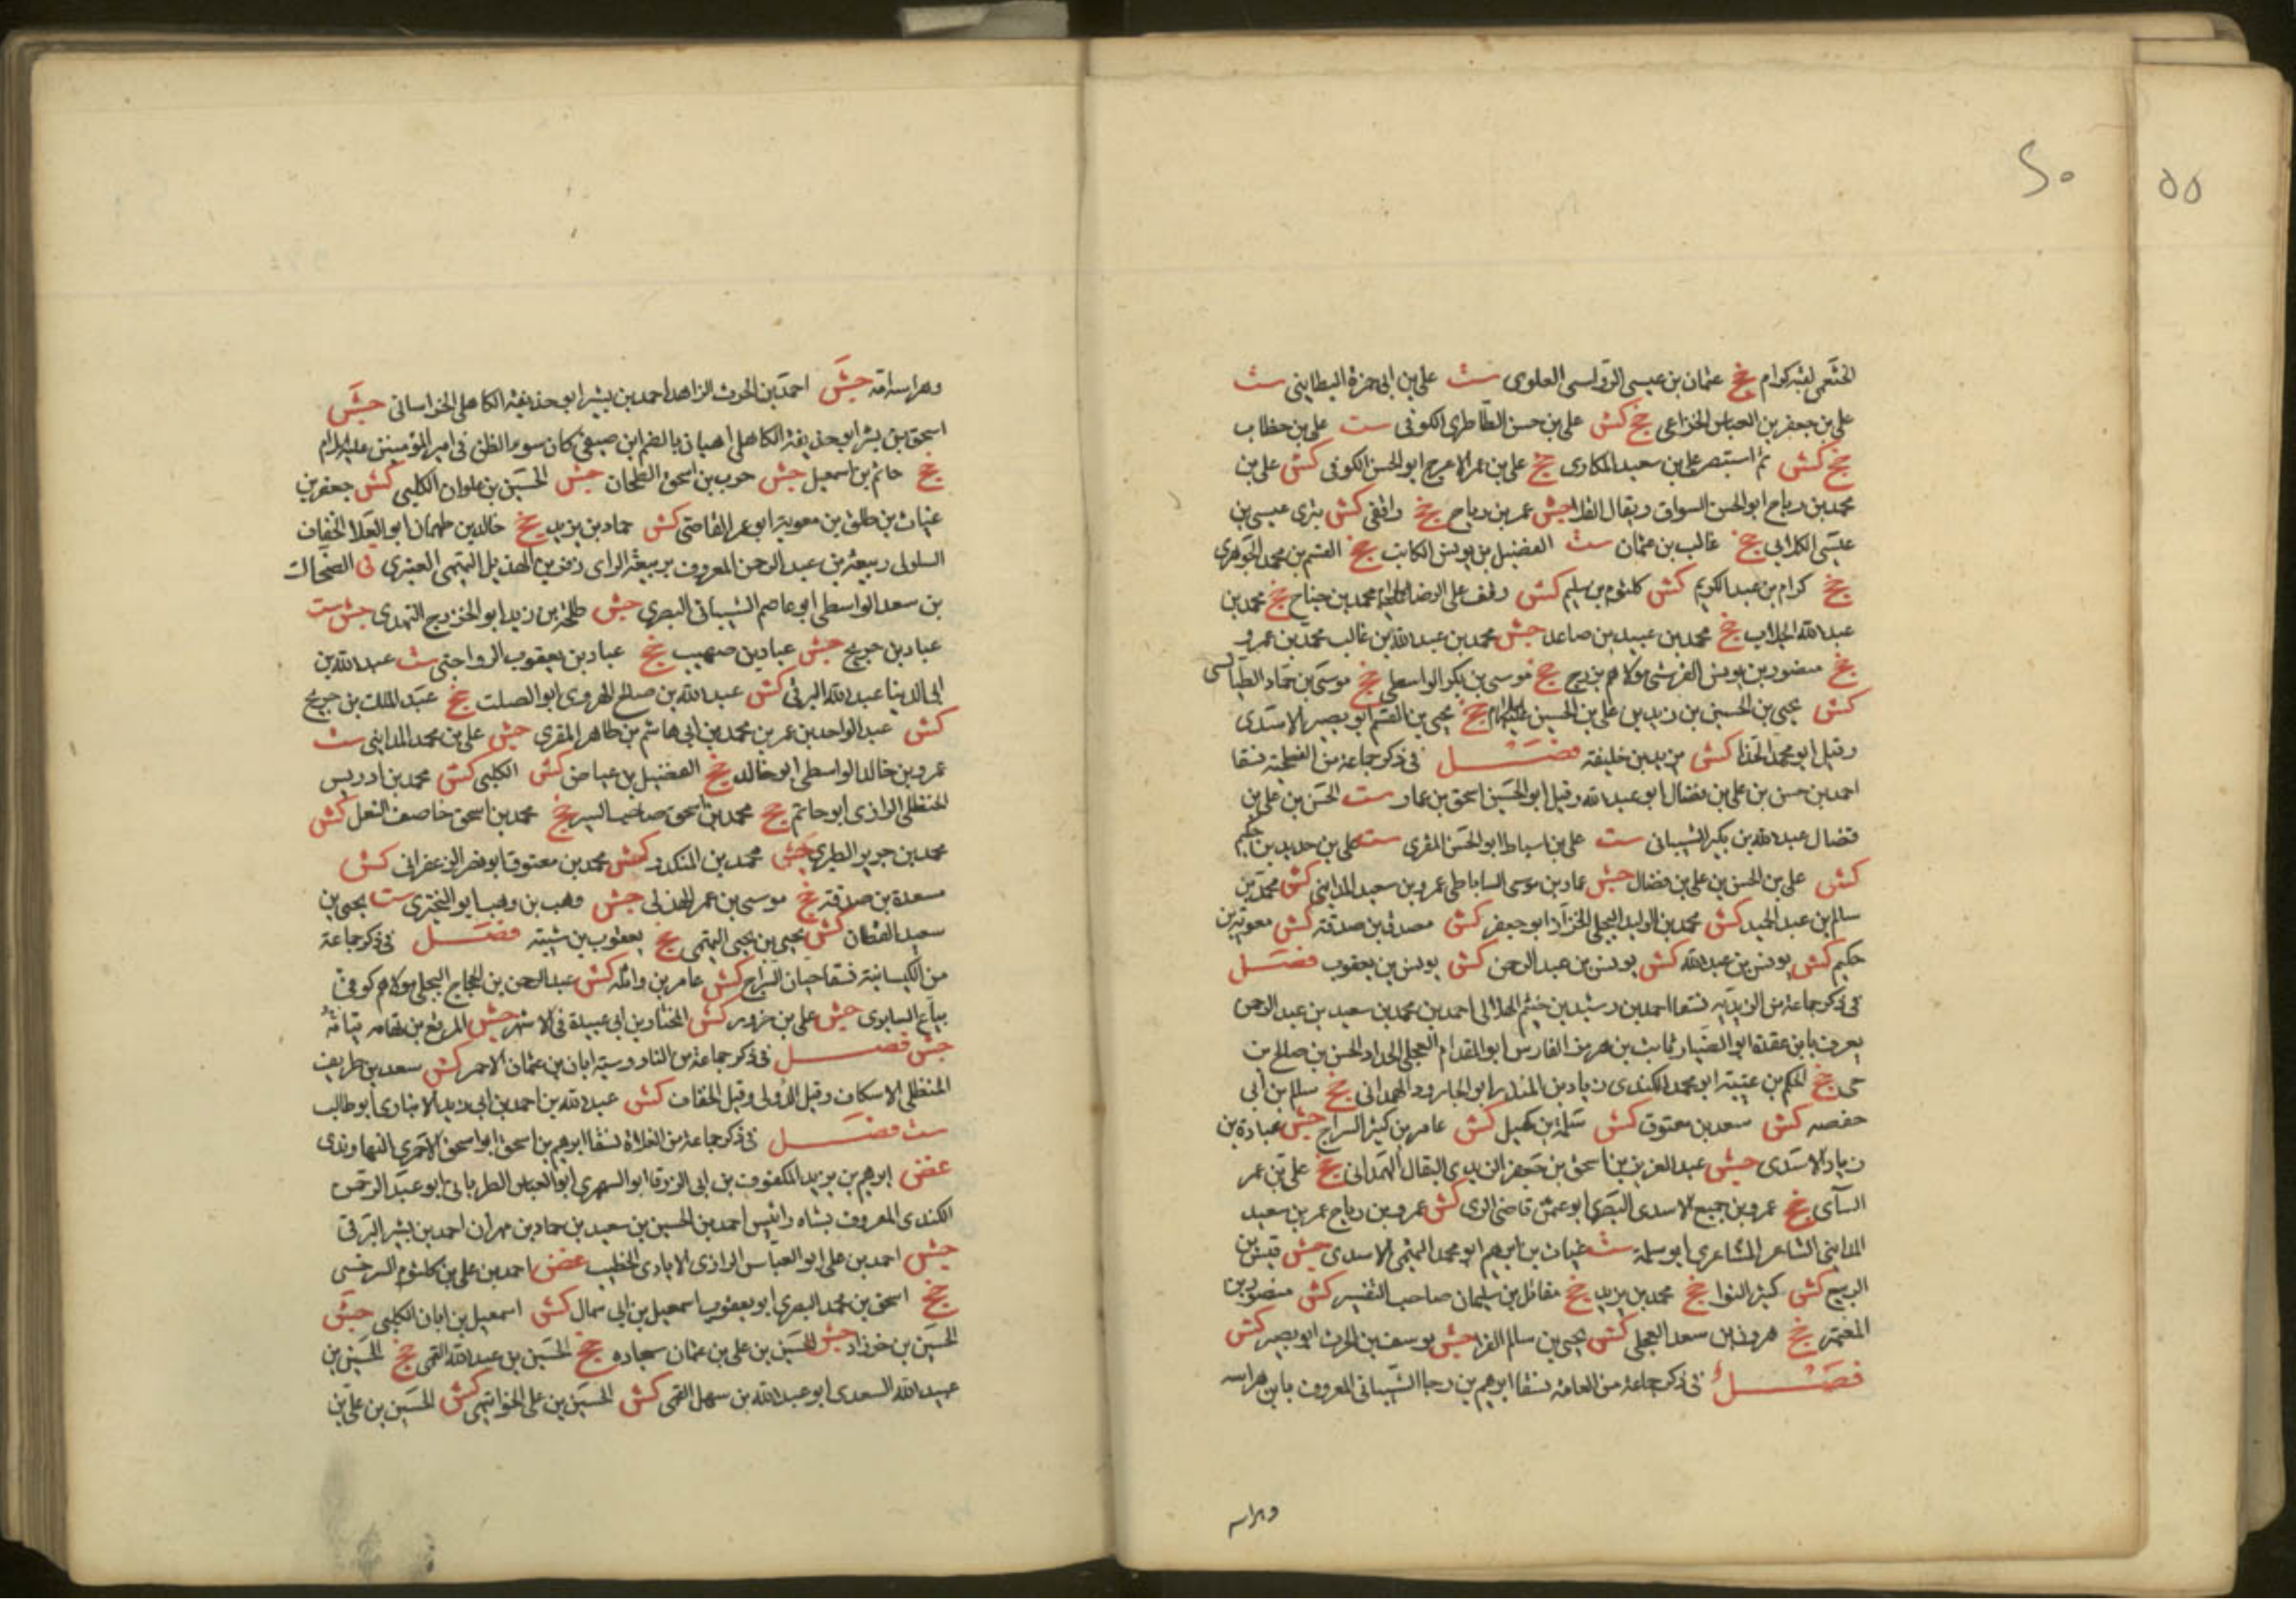 ٢٠
٥٥
الخثعمى لقبه كرام خ عثمان بن عيسى الرواسى العلوى ست على بن ابى حمزة البطاينى ست
على بن جعفر بن العباس الخزاعى خ كش على بن حسن الطاطرى الكوفى ست على بن خطاب
جخ كش ثم استبصر على بن سعيد المكارى جخ على بن عمر الاعرج ابو الحسن الكوفى كش على بن
محمد بن رباح ابو الحسن السواق ويقال القلا جش عمر بن رباح جخ واقفى كش بترى عيسى بن
عيسى الكلابى جخ غالب بن عثمان ست الفضيل بن يونس الكاتب جخ القسم بن محمد الجوهرى
جخ كرام بن عبد الكريم كش كلثوم بن سليم كش وقف على الرضا محمد بن جناح جخ محمد بن
عبد الله الجلاب خ محمد بن عبيد بن صاعد جش محمد بن عبد الله بن غالب محمد بن عمرو
جخ منصور بن يونس القرشى مولاهم بزرج جخ موسى بن بكر الواسطى جخ موسى بن حماد الطيالسى
كش يحيى بن الحسين بن زيد بن على بن الحسين عليهم السلام جخ يحيى بن القسم ابو بصير الاسدى
وقيل ابو محمد الحذا كش يزيد بن خليفة فصل فى ذكر جماعة من الفطحية نسقا
احمد بن حسن بن على بن فضال ابو عبد الله وقيل ابو الحسين اسحق بن عمار ست الحسن بن على بن
فضال عبد الله بن بكير الشيبانى ست على بن اسباط ابو الحسن المقرى ست على بن حديد بن حكيم
كش على بن الحسن بن على بن فضال جش عمار بن موسى الساباطى عمرو بن سعيد المداينى كش محمد بن
سالم بن عبد الحميد كش محمد بن الوليد البجلى الخزاز ابو جعفر كش مصدق بن صدقة كش معوية بن
حكيم كش يونس بن عبد الله كش يونس بن عبد الرحمن كش يونس بن يعقوب فصل
فى ذكر جماعة من الزيدية نسقا احمد بن رشيد بن خثيم الهلالى احمد بن محمد بن سعيد بن عبد الرحمن
يعرف بابن عقدة ابو الضبار ثابت بن هرمز الفارسى ابو المقدام العجلى الحداد الحسن بن صالح بن
حى جخ الحكم بن عتيبة ابو محمد الكندى زياد بن المنذر ابو الجارود الهمدانى جخ سالم بن ابى
حفصه كش سعد بن معتوق كش سلمة بن كهيل كش عامر بن كثير السراج جش عبادة بن
زياد الاسدى جش عبد العزيز بن اسحق بن جعفر الزيدى البقال الهمدانى خ على بن عمر
الساى خ عمرو بن جميع الاسدى البصرى ابو عثمن قاضى الرى كش عمرو بن رباح عمر بن سعيد
المداينى الشاعر المشاعرى ابو سلمة ست غياث بن ابرهيم ابو محمد التميمى الاسدى جش قيس بن
الربيع كش كثير النوا خ محمد بن يزيد خ مقاتل بن سليمان صاحب التفسير كش منصور بن
المعتمر خ هرون بن سعد العجلى كش يحيى بن سالم الفرا جش يوسف بن الحرث ابو بصير كش
فصل فى ذكر جماعة من العامة نسقا ابرهيم بن رجا الشيبانى المعروف بابن هراسه
وهراسه
وهراسه امه جش احمد بن الحرث الزاهد احمد بن بشير ابو حذيفة الكاهلى الخراسانى جش
اسحق بن بشر ابو حذيفة الكاهلى اهبان بالضم ابن صيفى كان سوء الظن فى امير المؤمنين عليه السلام
جخ حاتم بن اسمعيل جش حرب بن اسحق الطحان جش الحسين بن علوان الكلبى كش حفص بن
غياث بن طلق بن معوية ابو عمر القاضى كش حماد بن يزيد جخ خالد بن طهمان ابو العلا الخفاف
السلولى ربيعة بن عبد الرحمن المعروف بربيعة الراى زفر بن الهذيل التيمى العنبرى فى الضحاك
بن سعد الواسطى ابو عاصم الشيبانى البصرى جش طلحة بن زيد ابو الخزرج النهدى جش ست
عباد بن جريح جش عباد بن صهيب جخ عباد بن يعقوب الرواجنى ست عبد الله بن
ابى الدينا عبد الله البرقى كش عبد الله بن صالح الهروى ابو الصلت جخ عبد الملك بن جريح
كش عبد الواحد بن عمر بن محمد بن ابى هاشم بن طاهر المقرى جش على بن محمد المداينى ست
عمرو بن خالد الواسطى ابو خالد جخ الفضيل بن عياض كش الكلبى كش محمد بن ادريس
الحنظلى الرازى ابو حاتم جخ محمد بن اسحق صاحب السير جخ محمد بن اسحق خاصف النعل كش
محمد بن جرير الطبرى جش محمد بن المنكدر كش محمد بن معتوق ابو نصر الزعفرانى كش
مسعدة بن صدقة خ موسى بن عمر الهذلى جش وهب بن وهب ابو البخترى ست يحيى بن
سعيد القطان كش يحيى بن يحيى التميمى جخ يعقوب بن شيبة فصل فى ذكر جماعة
من الكيسانية نسقا حيان السراج كش عامر بن واثله كش عبد الرحمن بن الحجاج البجلى مولاهم كوفى
بياع السابرى جش على بن حزور كش المختار بن ابى عبيدة فى الاشهر جش المرقع بن قمامه
جش فصل فى ذكر جماعة من الناووسية ابان بن عثمان الاحمر كش سعد بن طريف
الحنظلى الاسكاف وقيل الدؤلى وقيل الخفاف كش عبد الله بن احمد بن ابى زيد الانبارى ابو طالب
ست فصل فى ذكر جماعة من الغلاة نسقا ابرهيم بن اسحق ابو اسحق الاحمرى النهاوندى
غض ابرهيم بن يزيد المكفوف بن ابى الزرقا ابو السهرى ابو العباس الطربانى ابو عبد الرحمن
الكندى المعروف بشاه رائيس احمد بن الحسين بن سعيد بن حماد بن مهران احمد بن بشير البرقى
جش احمد بن على ابو العباس الرازى الايادى الخطيب غض احمد بن على بن كلثوم السرخسى
جخ اسحق بن محمد البصرى ابو يعقوب اسمعيل بن ابى سمال كش اسمعيل بن ابان الكلبى جش
الحسين بن خرزاد جش الحسين بن على بن عثمان سجاده جخ الحسين بن عبد الله القمى جخ الحسين بن
عبيد الله السعدى ابو عبد الله بن سهل القمى كش الحسين بن على الخواتيمى كش الحسين بن على بن